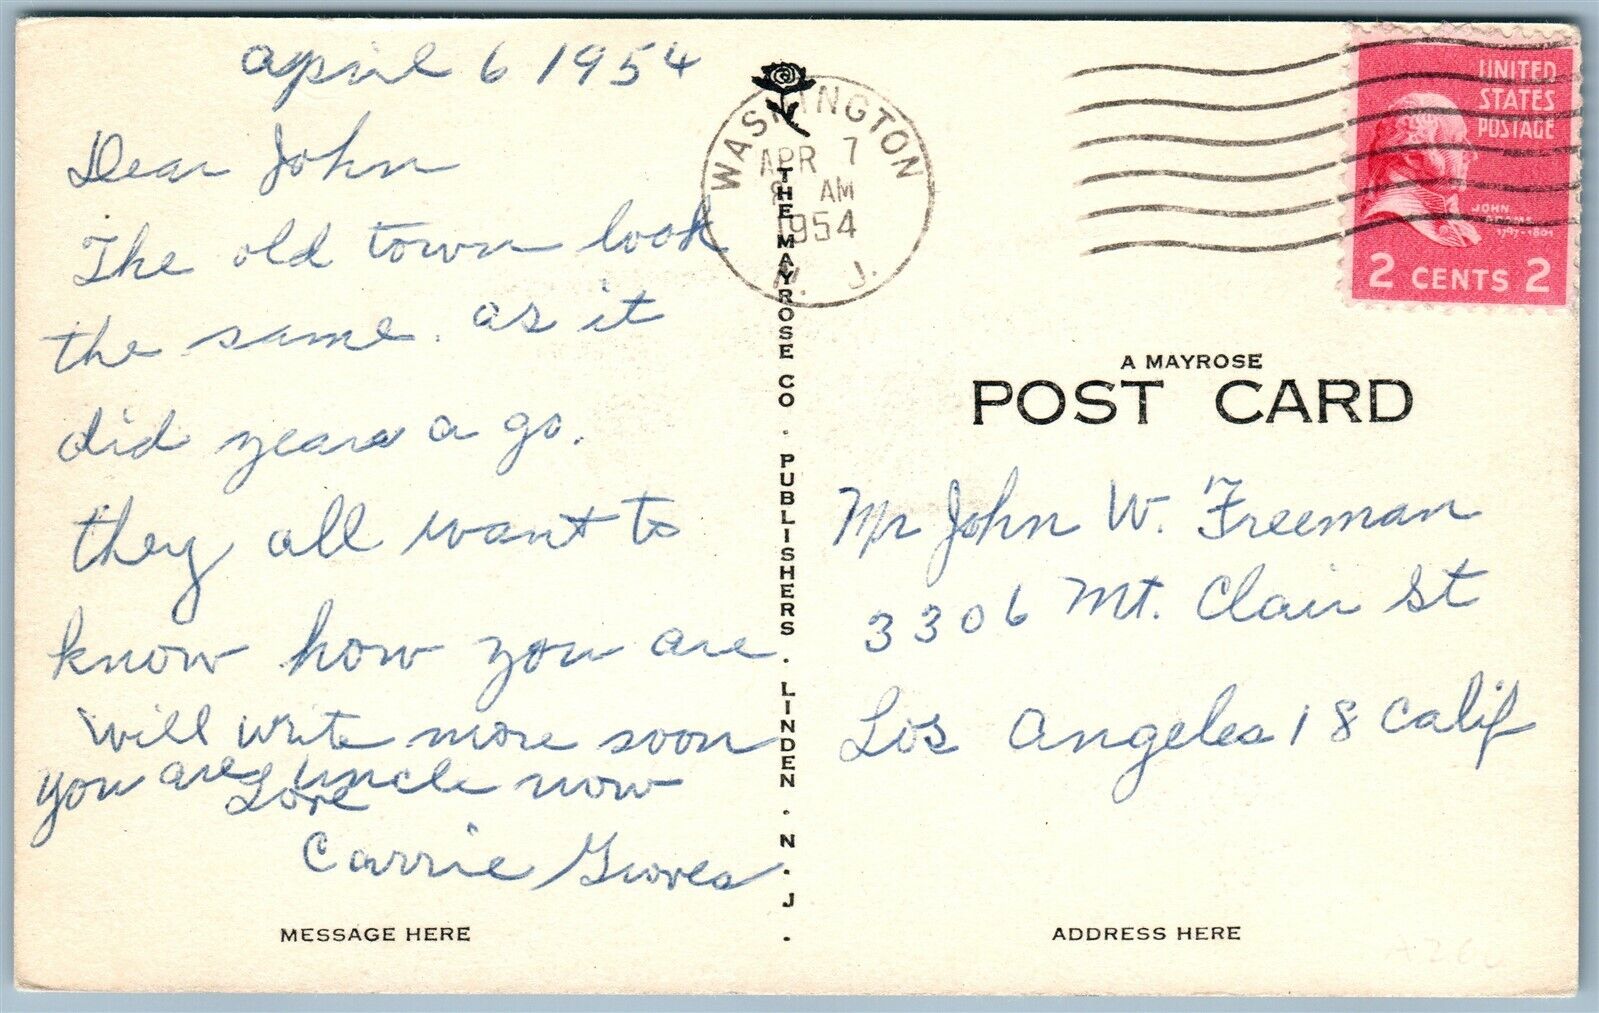 april 6 1954
Dear John
The old town look
the same. as it
did years a go.
they all want to
know how you are
will write more soon
you are uncle now
Love
Carrie Groves
MESSAGE HERE
THE MAYROSE CO. PUBLISHERS. LINDEN. N. J.
WASHINGTON
APR 7
AM
1954
N. J.
UNITED
STATES
POSTAGE
JOHN
ADAMS
1797-1801
2 CENTS 2
A MAYROSE
POST CARD
Mr John W. Freeman
3306 Mt. Clair St
Los Angeles 18 Calif
ADDRESS HERE